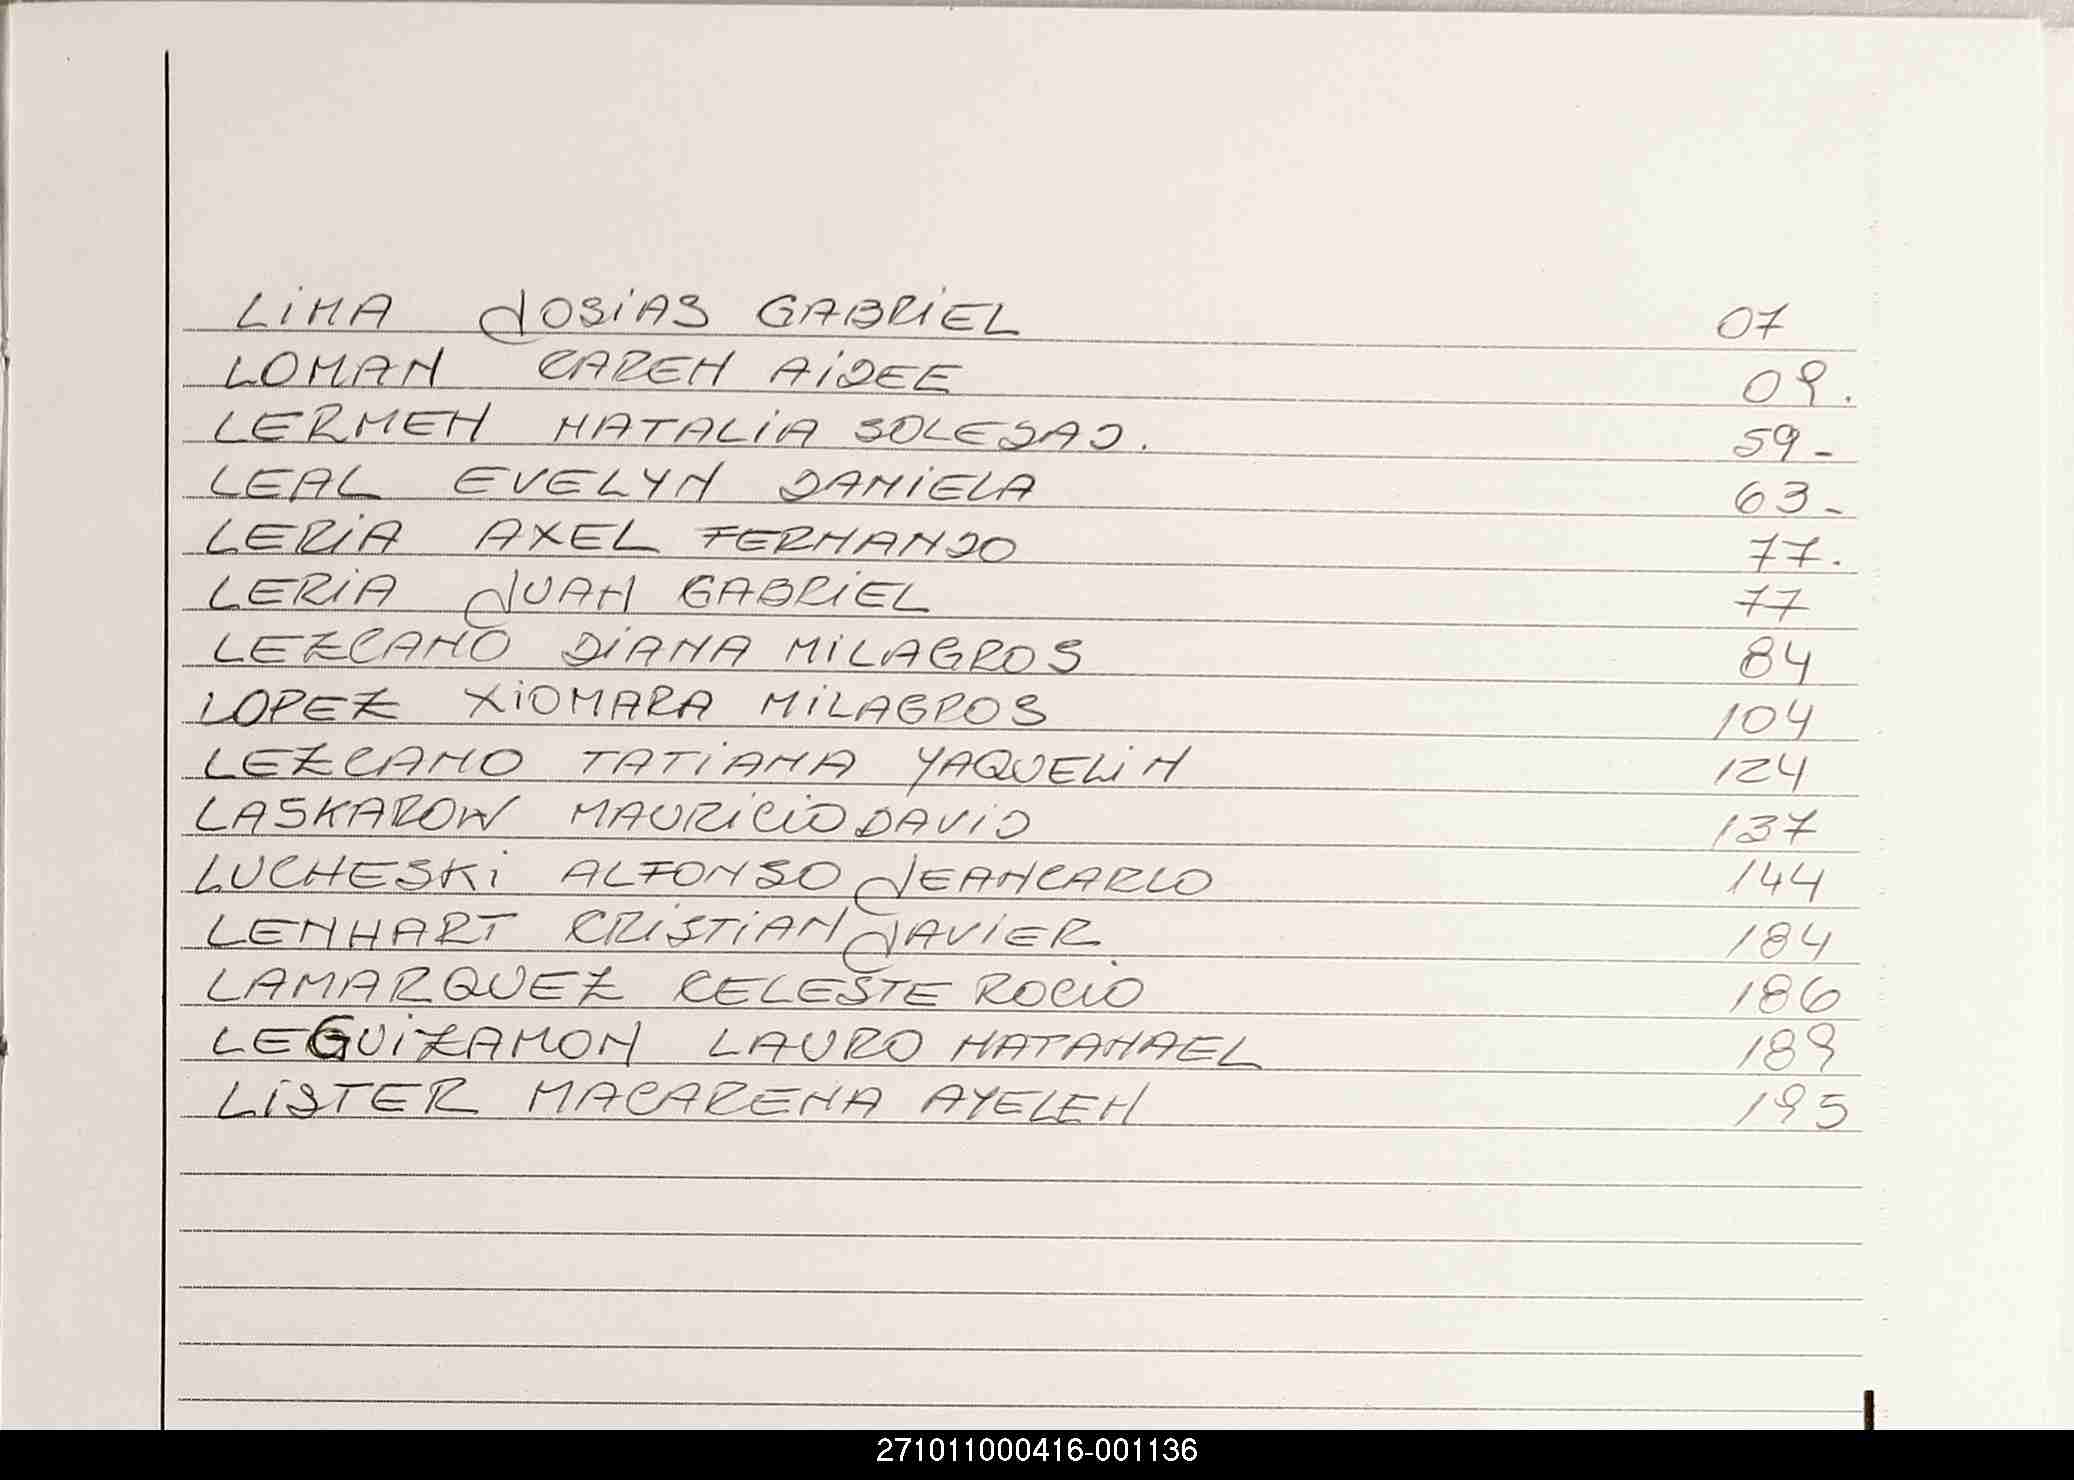 LIMA JOSIAS GABRIEL 07
LOMAN CAREN AIDEE 09.
LERMEN NATALIA SOLEDAD. 59-
LEAL EVELYN DANIELA 63-
LERIA AXEL FERNANDO 77.
LERIA JUAN GABRIEL 77
LEZCANO DIANA MILAGROS 84
LOPEZ XIOMARA MILAGROS 104
LEZCANO TATIANA YAQUELIN 124
LASKAROW MAURICIO DAVID 137
LUCHESKI ALFONSO JEANCARLO 144
LENHART CRISTIAN JAVIER 184
LAMARQUEZ CELESTE ROCIO 186
LEGUIZAMON LAURO NATANAEL 189
LISTER MACARENA AYELEN 195
271011000416-001136